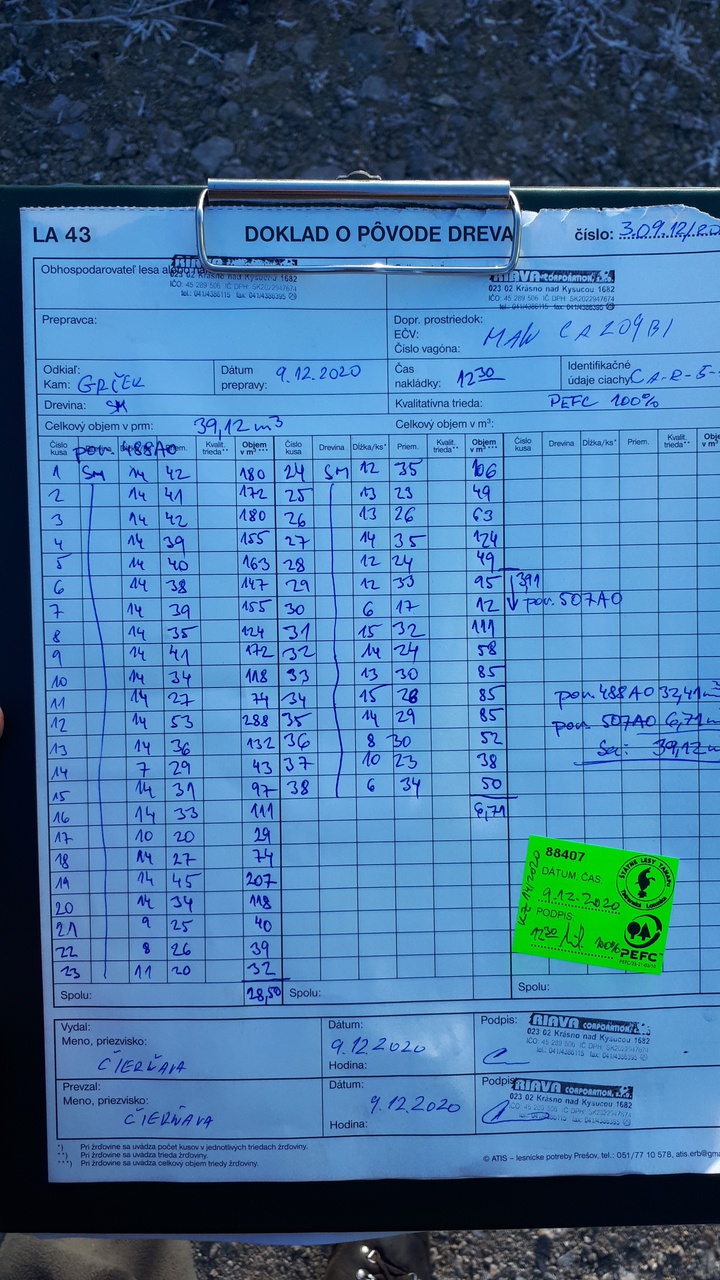 LA 43 DOKLAD O PÔVODE DREVA číslo: 309.12/20
Obhospodarovateľ lesa alebo
023 02 Krásno nad Kysucou 1682
IČO: 45 289 506 IČ DPH: SK2022947674
tel.: 041/4386115 fax: 041/4386395
RIAVA CORPORATION, s.r.o.
023 02 Krásno nad Kysucou 1682
IČO: 45 289 506 IČ DPH: SK2022947674
tel.: 041/4386115 fax: 041/4386395
Prepravca:
Dopr. prostriedok:
EČV:
Číslo vagóna:
MAN CA209BI
Odkiaľ:
Kam: GRČEK
Dátum
prepravy: 9.12.2020
Čas
nakládky: 12 30
Identifikačné
údaje ciachy CA-R-5-
Drevina: SM
Kvalitatívna trieda: PEFC 100%
Celkový objem v prm: 39,12 m3 Celkový objem v m³:
por. 488A0
Číslo kusa Kvalit. trieda**) Objem v m³ ***) Číslo kusa Drevina Dĺžka/ks* Priem. Kvalit. trieda**) Objem v m³ ***) Číslo kusa Drevina Dĺžka/ks* Priem. Kvalit. trieda**)
1 SM 14 42 180 24 SM 12 35 106
2 14 41 172 25 13 23 49
3 14 42 180 26 13 26 63
4 14 39 155 27 14 35 124
5 14 40 163 28 12 24 49
6 14 38 147 29 12 33 95 391
7 14 39 155 30 6 17 12 por. 507A0
8 14 35 124 31 15 32 111
9 14 41 172 32 14 24 58
10 14 34 118 33 13 30 85
11 14 27 74 34 15 26 85 por. 488A0 32,41 m
12 14 53 288 35 14 29 85 por. 507A0 6,71 m
13 14 36 132 36 8 30 52 Sa: 39,12 m
14 7 29 43 37 10 23 38
15 14 31 97 38 6 34 50
16 14 33 111 6,71
17 10 20 29
18 14 27 74
19 14 45 207
20 14 34 118
21 9 25 40
22 8 26 39
23 11 20 32
Spolu: 28,50 Spolu: Spolu:
88407
DÁTUM, ČAS
9.12.2020
PODPIS
12 30 100%
ŠTÁTNE LESY TANAPU
Tatranská Lomnica
PEFC
Vydal:
Meno, priezvisko:
ČIERŇAVA
Dátum:
9.12.2020
Hodina:
Podpis:
RIAVA CORPORATION, s.r.o.
023 02 Krásno nad Kysucou 1682
IČO: 45 289 506 IČ DPH: SK2022947674
tel.: 041/4386115 fax: 041/4386395
Prevzal:
Meno, priezvisko:
ČIERŇAVA
Dátum:
9.12.2020
Hodina:
Podpis
RIAVA CORPORATION, s.r.o.
023 02 Krásno nad Kysucou 1682
*) Pri žrďovine sa uvádza počet kusov v jednotlivých triedach žrďoviny.
**) Pri žrďovine sa uvádza trieda žrďoviny.
***) Pri žrďovine sa uvádza celkový objem triedy žrďoviny.
© ATIS – lesnícke potreby Prešov, tel.: 051/77 10 578, atis.erb@gma